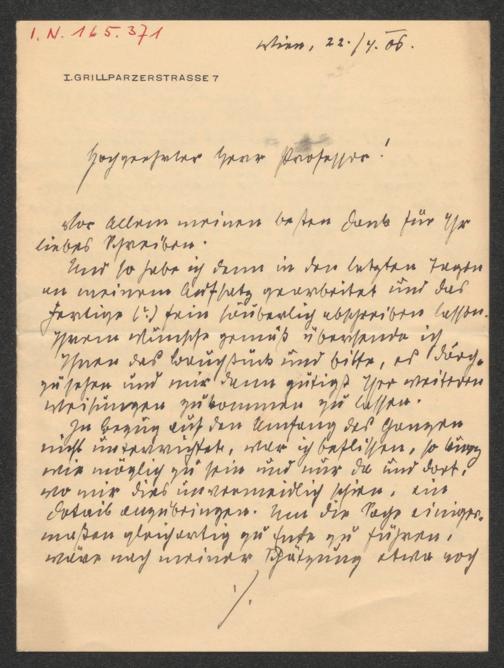 I.N. 165.371
Wien, 22./4. 06.
I. GRILLPARZERSTRASSE 7
Hochgeehrter Herr Professor!
Vor Allem meinen besten Dank für Ihr
liebes Schreiben.
Und so habe ich denn in den letzten Tagen
an meinem Aufsatz gearbeitet und das
Fertige (?) fein säuberlich abschreiben lassen.
Ihrem Wunsche gemäß übersende ich
Ihnen das Bruchstück und bitte, es durch-
zusehen und mir dann gütigst Ihre weiteren
Weisungen zukommen zu lassen.
In Bezug auf den Umfang des Ganzen
nicht unterrichtet, war ich beflissen, so knapp
wie möglich zu sein und nur da und dort,
wo mir dies unvermeidlich schien, ein
Detail anzubringen. Um die Sache einiger-
maßen gleichartig zu Ende zu führen,
wäre nach meiner Schätzung etwa noch
./.